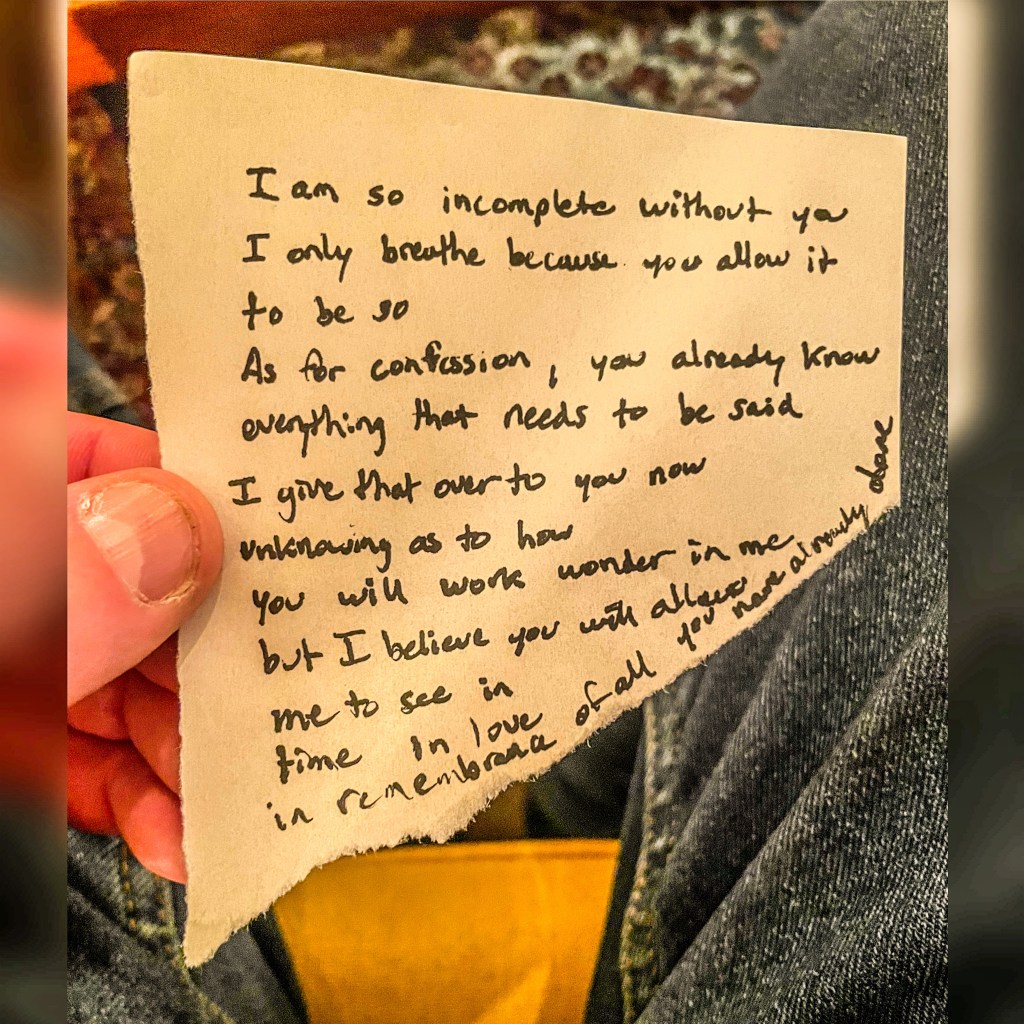 I am so incomplete without you
I only breathe because you allow it
to be so
As for confession, you already know
everything that needs to be said
I give that over to you now
unknowing as to how
you will work wonder in me
but I believe you will allow
me to see in
time in love
in remembrance of all you have already done